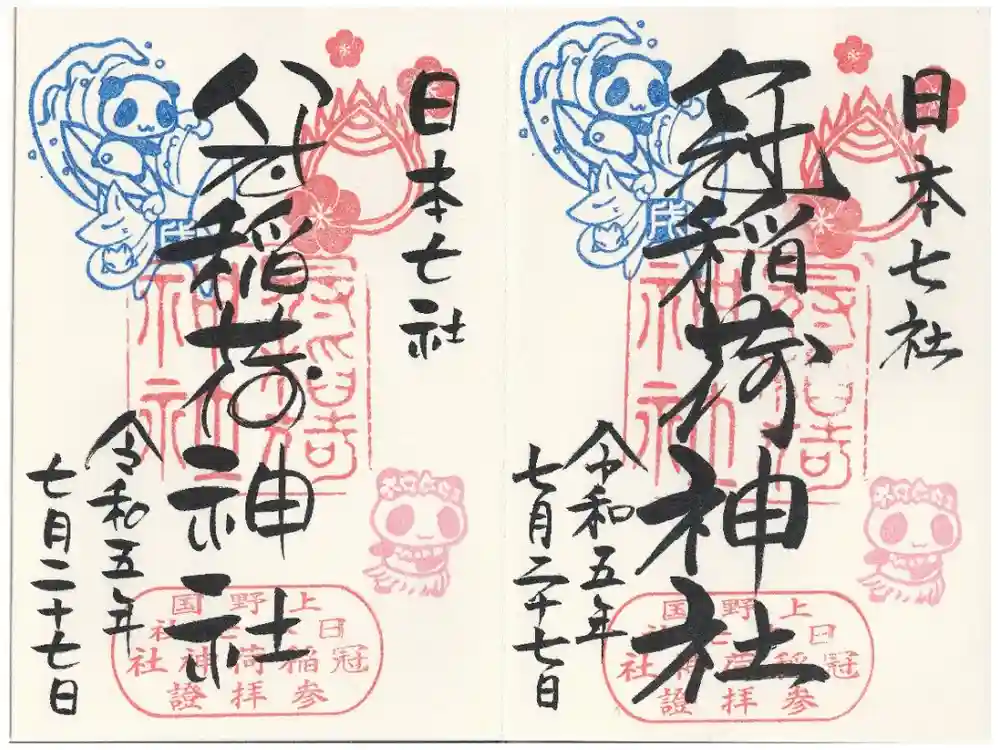 日本七社
冠稲荷神社
令和五年
七月二十七日
上野国
日本七社
冠稲荷神社
参拝證
日本七社
冠稲荷神社
令和五年
七月二十七日
上野国
日本七社
冠稲荷神社
参拝證